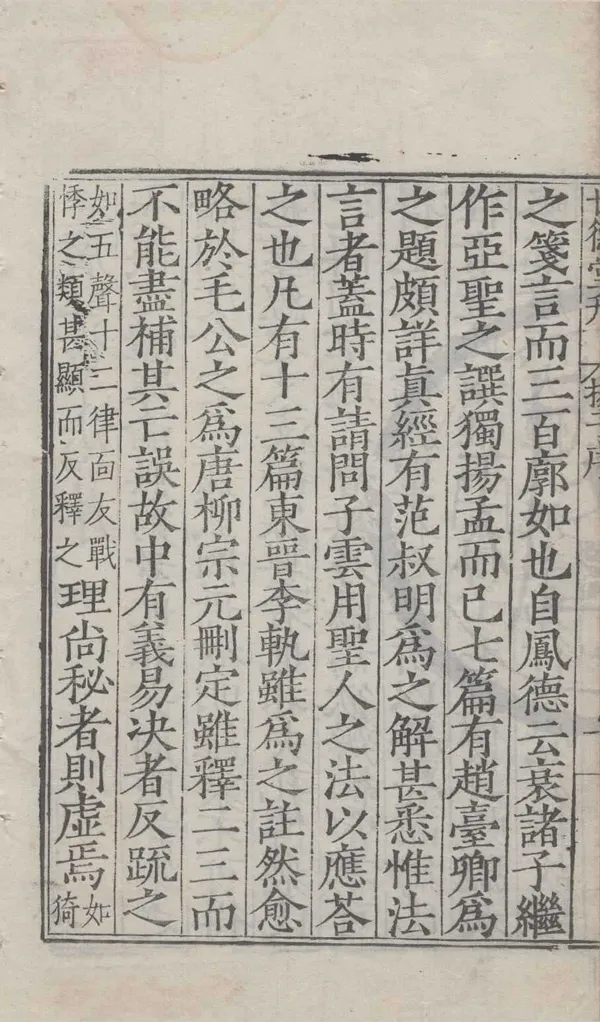 世德堂刊
揚子序
之箋言而三百廓如也自鳳德云衰諸子繼
作亞聖之譔獨揚孟而已七篇有趙臺卿爲
之題頗詳眞經有范叔明爲之解甚悉惟法
言者蓋時有請問子雲用聖人之法以應荅
之也凡有十三篇東晉李軌雖爲之註然愈
略於毛公之爲唐柳宗元刪定雖釋二三而
不能盡補其亡誤故中有義易决者反䟽之
如五聲十二律面友戰
悸之類甚顯而反釋之
理尚秘者則虛焉
如
猗